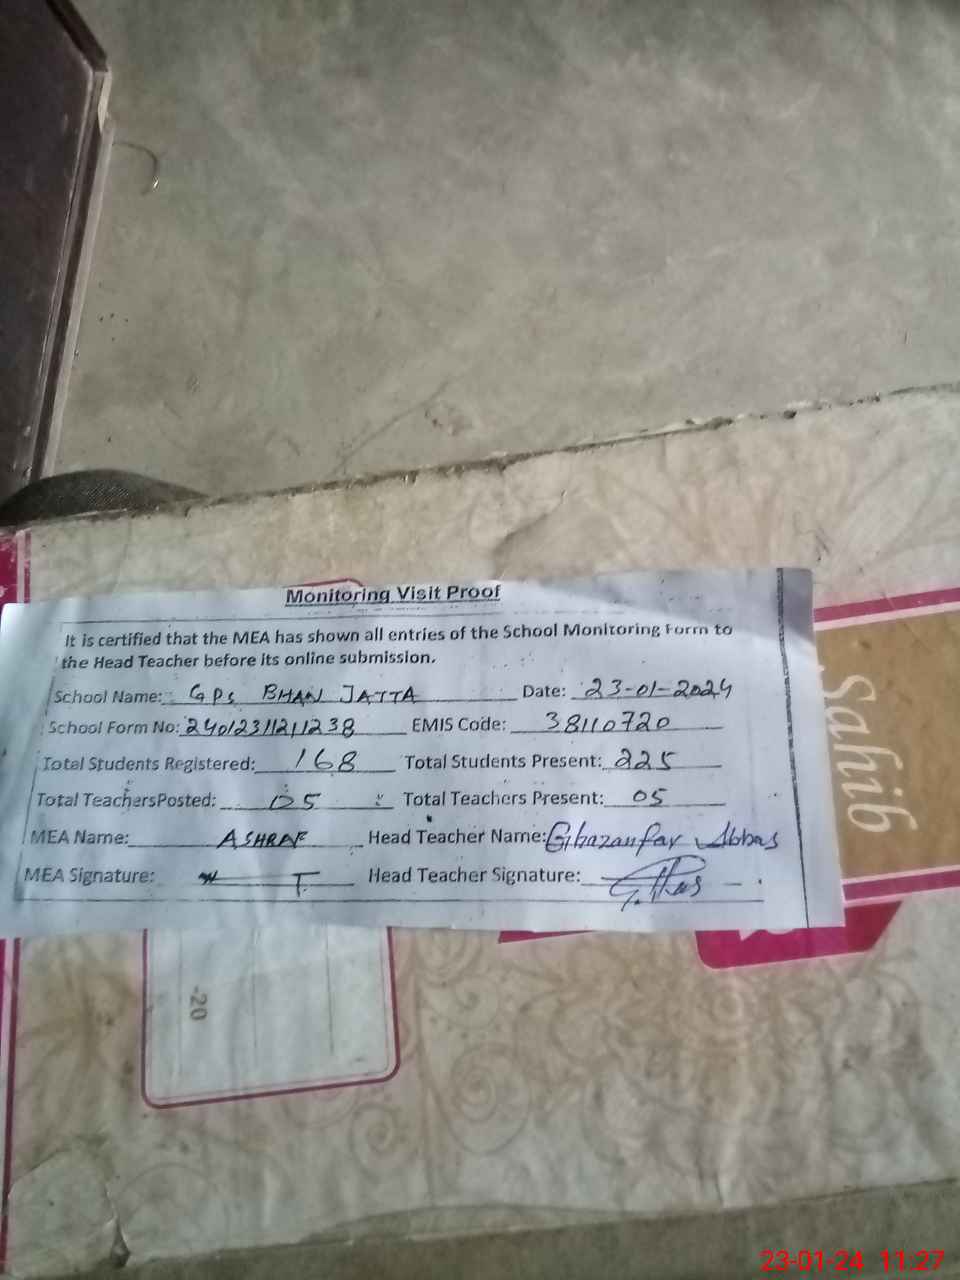 Monitoring Visit Proof
It is certified that the MEA has shown all entries of the School Monitoring Form to
the Head Teacher before its online submission.
School Name: GPS BHAN JATTA Date: 23-01-2024
School Form No: 2401231121 1238 EMIS Code: 38110720
Total Students Registered: 168 Total Students Present: 225
Total TeachersPosted: 05 Total Teachers Present: 05
MEA Name: ASHRAF Head Teacher Name: Ghazanfar Abbas
MEA Signature: Head Teacher Signature:
Sahib
-20
23-01-24 11:27